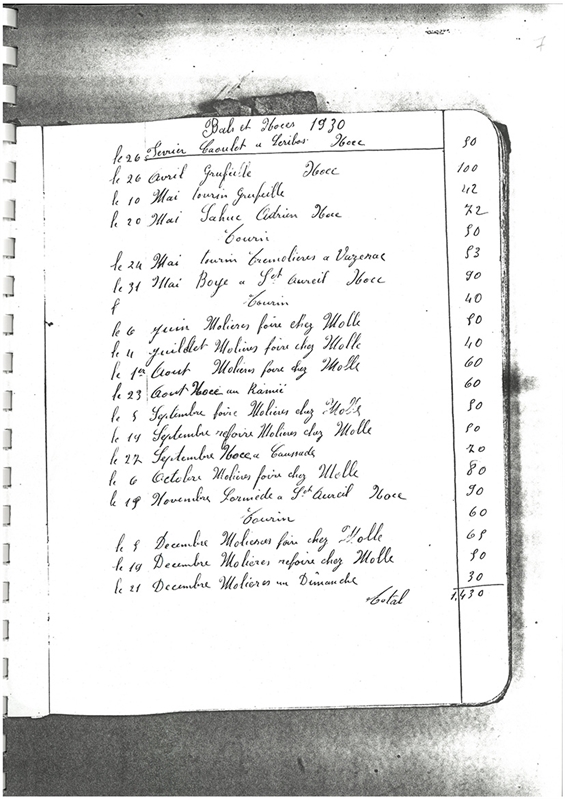 Bals et Noces 1930
le 26 Fevrier Caoulet a Leribos Noce 50
le 26 Avril Grufielle Noce 100
le 10 Mai tourin Grufielle 42
le 20 Mai Sahuc Adrien Noce 72
Tourin 50
le 24 Mai tourin Tremolieres a Vazerac 53
le 31 Mai Boye a St Aureil Noce 90
Tourin 40
le 6 juin Molières foire chez Molle 50
le 4 juillet Molières foire chez Molle 40
le 1er Aout Molières foire chez Molle 60
le 23 Aout Noce au Ramié 60
le 5 Septembre foire Molières chez Molle 50
le 19 Septembre refoire Molières chez Molle 50
le 27 Septembre Noce a Caussade 70
le 6 Octobre Molières foire chez Molle 80
le 19 Novembre Lormède a St Aureil Noce 90
Tourin 60
le 5 Decembre Molieres foire chez Molle 65
le 19 Decembre Molieres refoire chez Molle 50
le 21 Decembre Molieres un Dimanche 30
Total 1.430